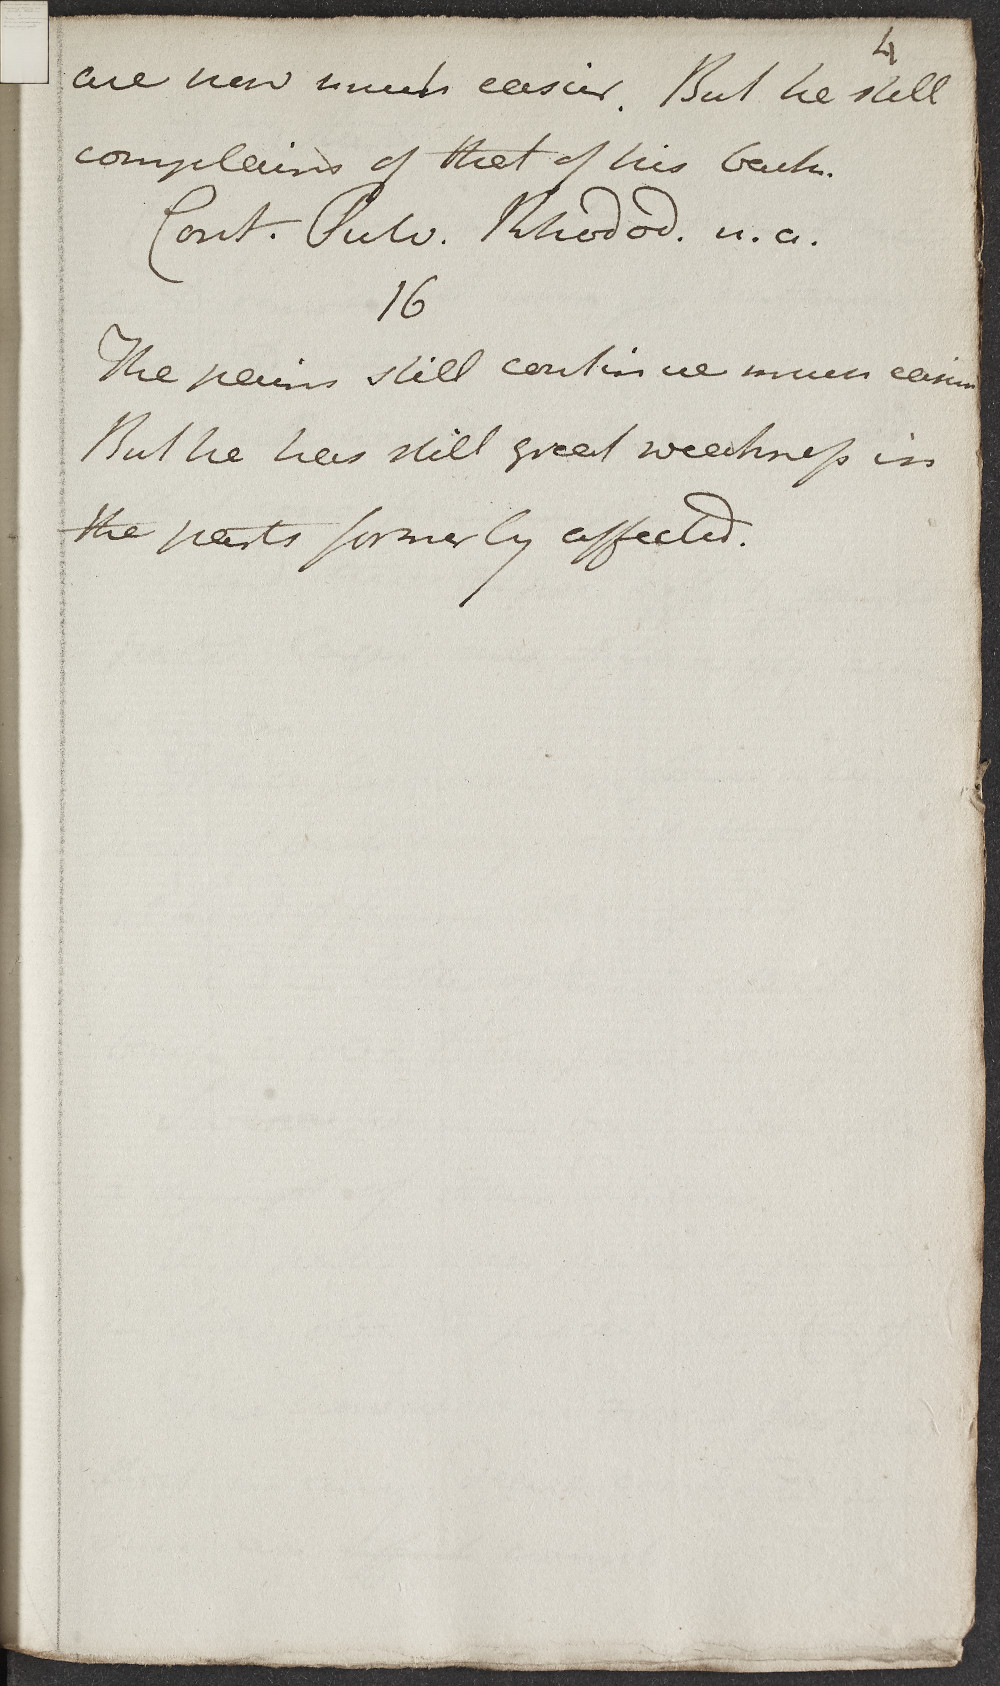 4
are now much easier. But he still
complains of that of his back.
Cont. Pulv. Rhodod. u.a.
16
The pains still continue much easier
But he has still great weakneſs in
the parts formerly affected.